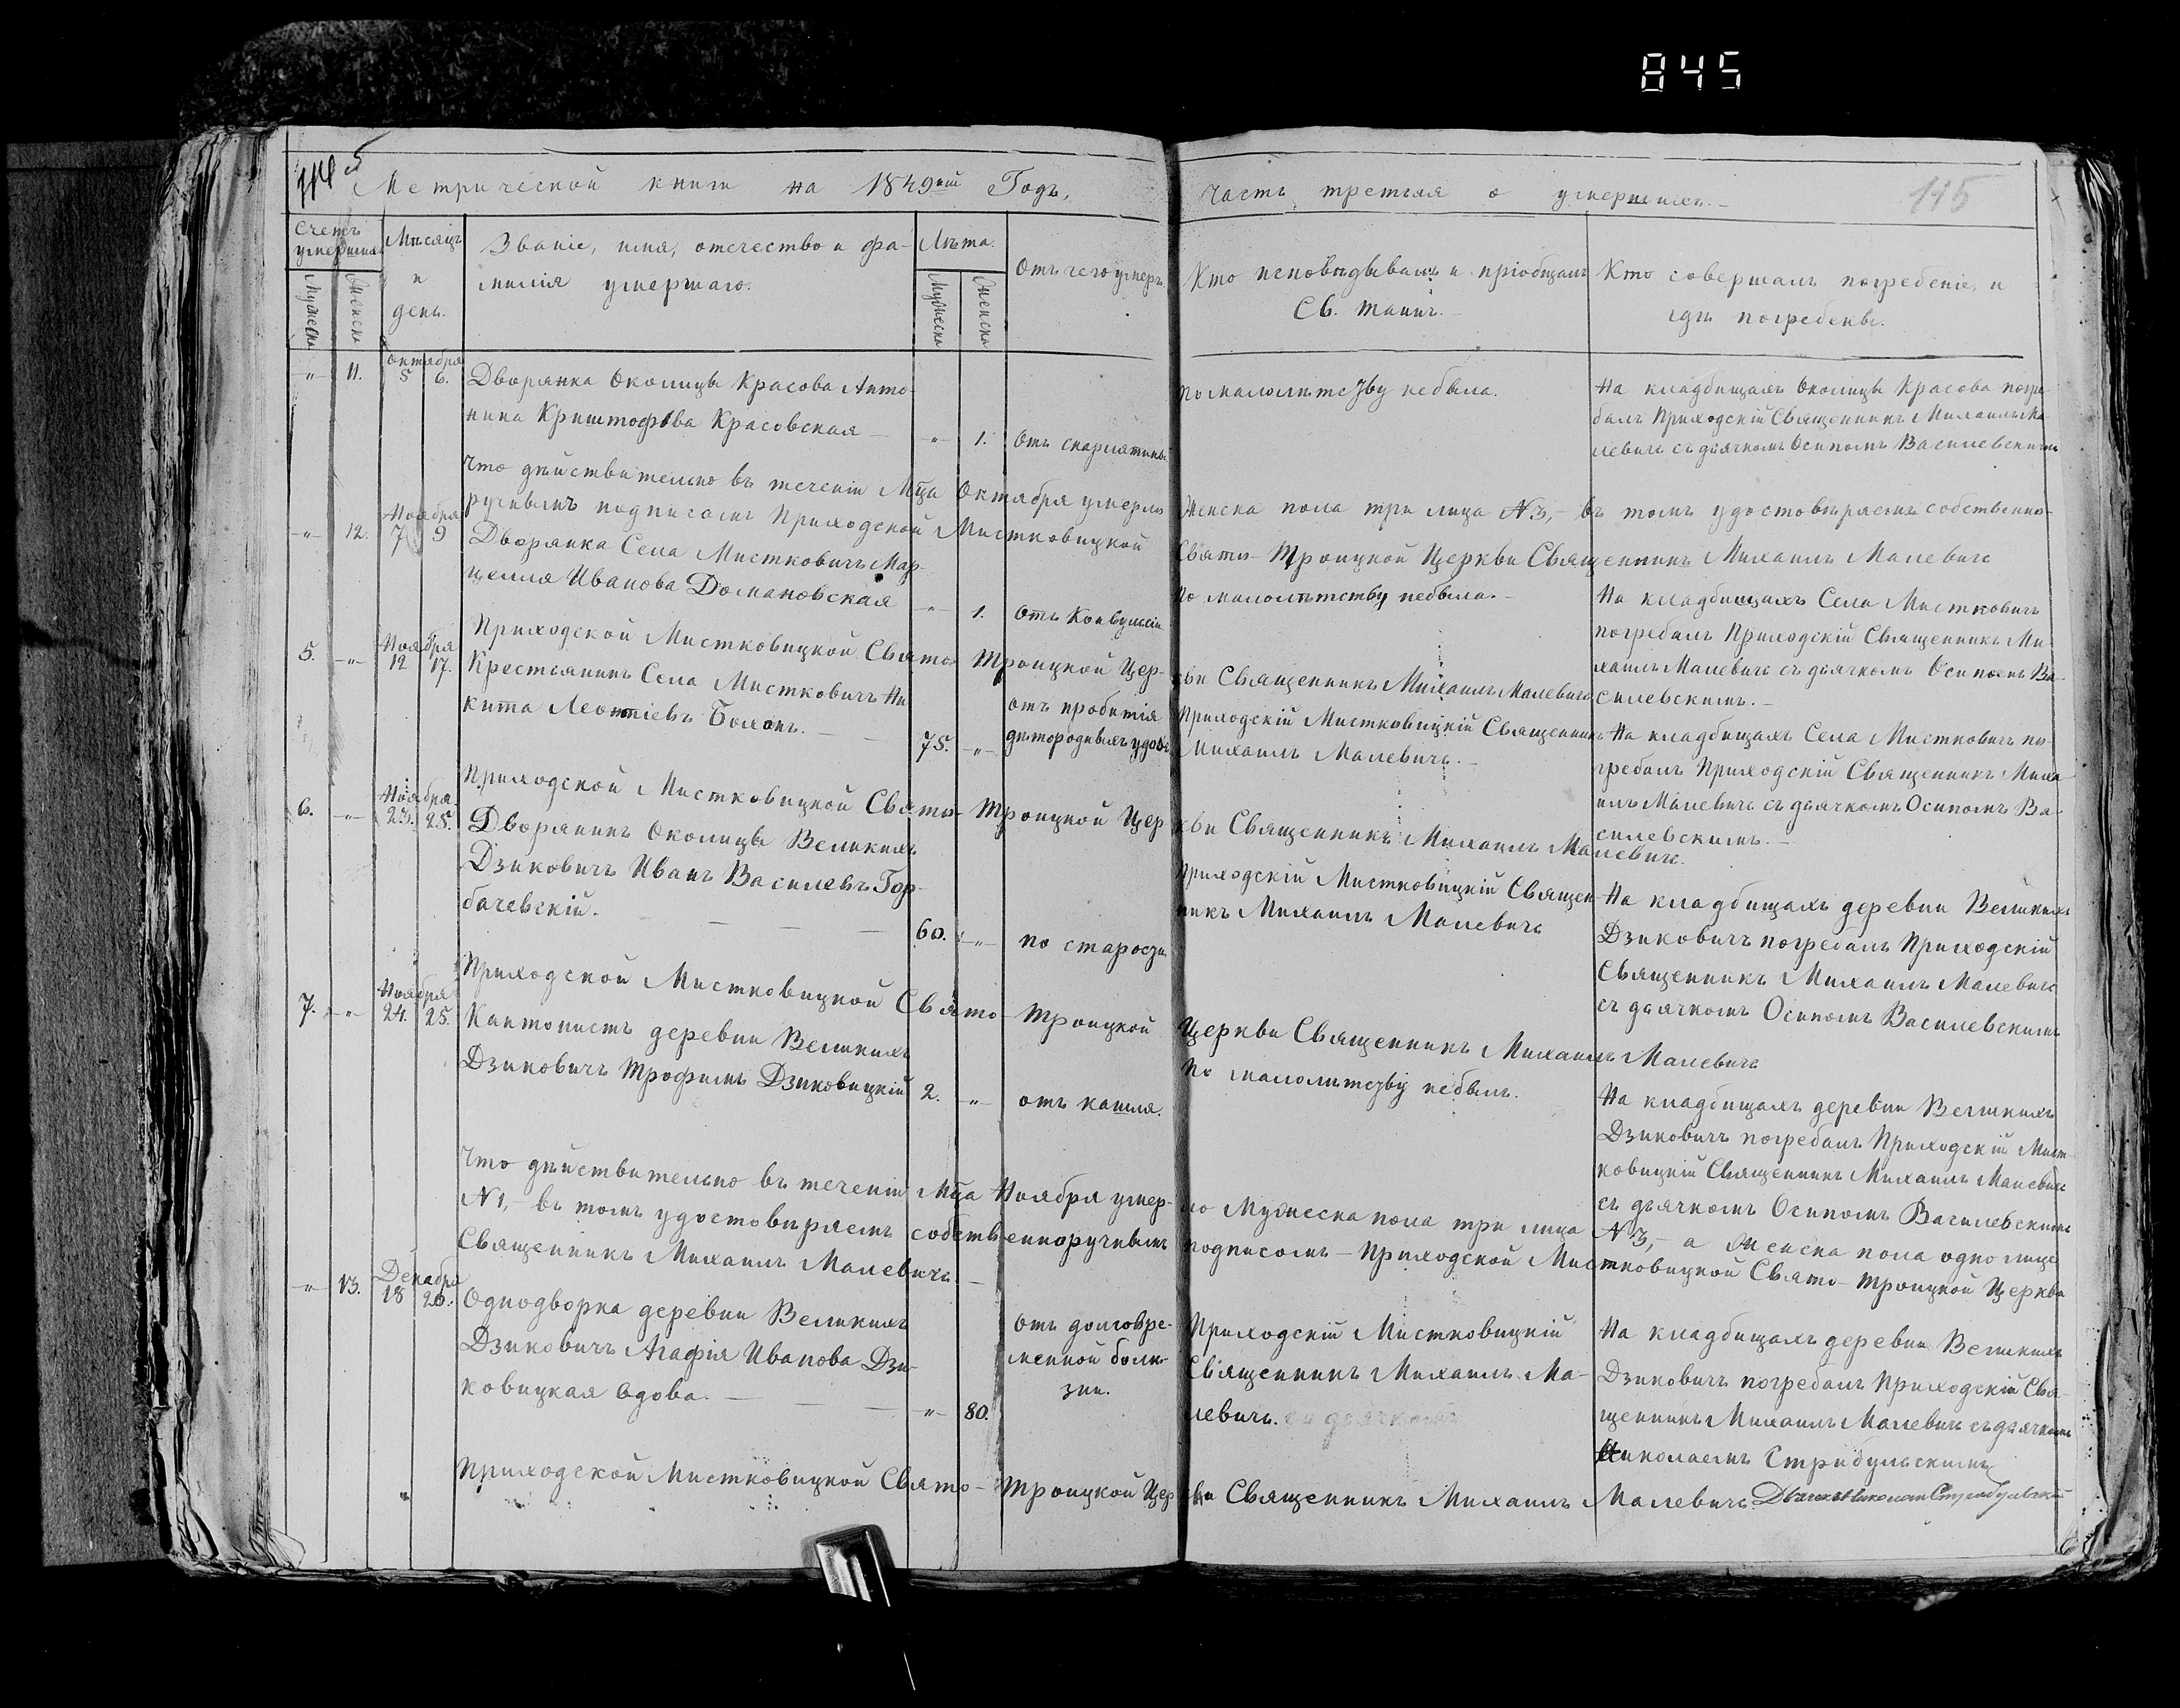 845
Метрической книги на 1849ый Годъ,
часть третья о умершихъ.
115
Счетъ умершихъ
Мужеска
Женска
Мѣсяцъ и день.
Званіе, имя, отечество и фа-
милія умершаго.
Лѣта.
Мужеска
Женска
Отъ чего умеръ
Кто исповѣдывалъ и пріобщалъ
Св. таинъ.
Кто совершалъ погребеніе, и
гдѣ погребены.
" 11.
Октября
5 6.
Дворянка Околицы Красова Анто-
нина Криштофова Красовская
" 1.
Отъ скарлятины
По малолѣтству небыла.
На кладбищахъ Околицы Красова погре-
балъ Приходскій Священникъ Михаилъ Ма-
левичъ съ дьячкомъ Осипомъ Василевскимъ
Что дѣйствительно въ теченіи Мца Октября умерло Женска пола три лица №3,- въ томъ удостовѣряемъ собственно-
ручнымъ подписомъ Приходской Мистковицкой Свято-Троицкой Церкви Священникъ Михаилъ Малевичъ
" 12.
Ноября
7 9
Дворянка Села Мистковичъ Мар-
целля Иванова Домановская
" 1.
Отъ Конвульсіи
По малолѣтству небыла.
На кладбищахъ Села Мистковичъ
погребалъ Приходскій Священникъ Ми-
хаилъ Малевичъ съ дьячкомъ Осипомъ Ва-
силевскимъ.
Приходской Мистковицкой Свято Троицкой Цер-
кви Священникъ Михаилъ Малевичъ
5. "
Ноября
12 17.
Крестьянинъ Села Мистковичъ Ни
кита Леонтіевъ
75. "
отъ пробитія
дѣтородныхъ удовъ
Приходскій Мистковицкій Священникъ
Михаилъ Малевичъ.
На кладбищахъ Села Мистковичъ по-
гребалъ Приходскій Священникъ Миха-
илъ Малевичъ съ дьячкомъ Осипомъ Ва-
силевскимъ.
Приходской Мистковицкой Свято-Троицкой Цер
кви Священникъ Михаилъ Малевичъ.
6. "
Ноября
23. 25.
Дворянинъ Околицы Великихъ
Дзиковичъ Иванъ Василевъ Гор-
бачевскій.
60. "
по старости
Приходскій Мистковицкій Священ
никъ Михаилъ Малевичъ
На кладбищахъ деревни Великихъ
Дзиковичъ погребалъ Приходскій
Священникъ Михаилъ Малевичъ
съ дьячкомъ Осипомъ Василевскимъ
Приходской Мистковицкой Свято-Троицкой Церкви Священникъ Михаилъ Малевичъ
7. "
Ноября
24. 25.
Кантонистъ деревни Великихъ
Дзиковичъ Трофимъ Дзиковицкій
2. "
отъ кашля.
По малолѣтству небылъ.
На кладбищахъ деревни Великихъ
Дзиковичъ погребалъ Приходскій Мист-
ковицкій Священникъ Михаилъ Малевичъ
съ дьячкомъ Осипомъ Василевскимъ
Что дѣйствительно въ теченіи Мца Ноября умер-
ло Мужеска пола три лица №3,- а Женска пола одно лице
№1,- въ томъ удостовѣряемъ собственноручнымъ подписомъ-Приходской Мистковицкой Свято-Троицкой Церкви
Священникъ Михаилъ Малевичъ.
" 13.
Декабря
18 20.
Однодворка деревни Великихъ
Дзиковичъ Агафія Иванова Дзи-
ковицкая вдова.
" 80.
отъ долговре-
менной болѣ-
зни.
Приходскій Мистковицкій
Священникъ Михаилъ Ма-
левичъ.
На кладбищахъ деревни Великихъ
Дзиковичъ погребалъ Приходскій Свя-
щенникъ Михаилъ Малевичъ съ дьячкомъ
Николаемъ Стридульскимъ
Приходской Мистковицкой Свято-Троицкой Церкви Священникъ Михаилъ Малевичъ Дьячекъ Николай Стридульскій